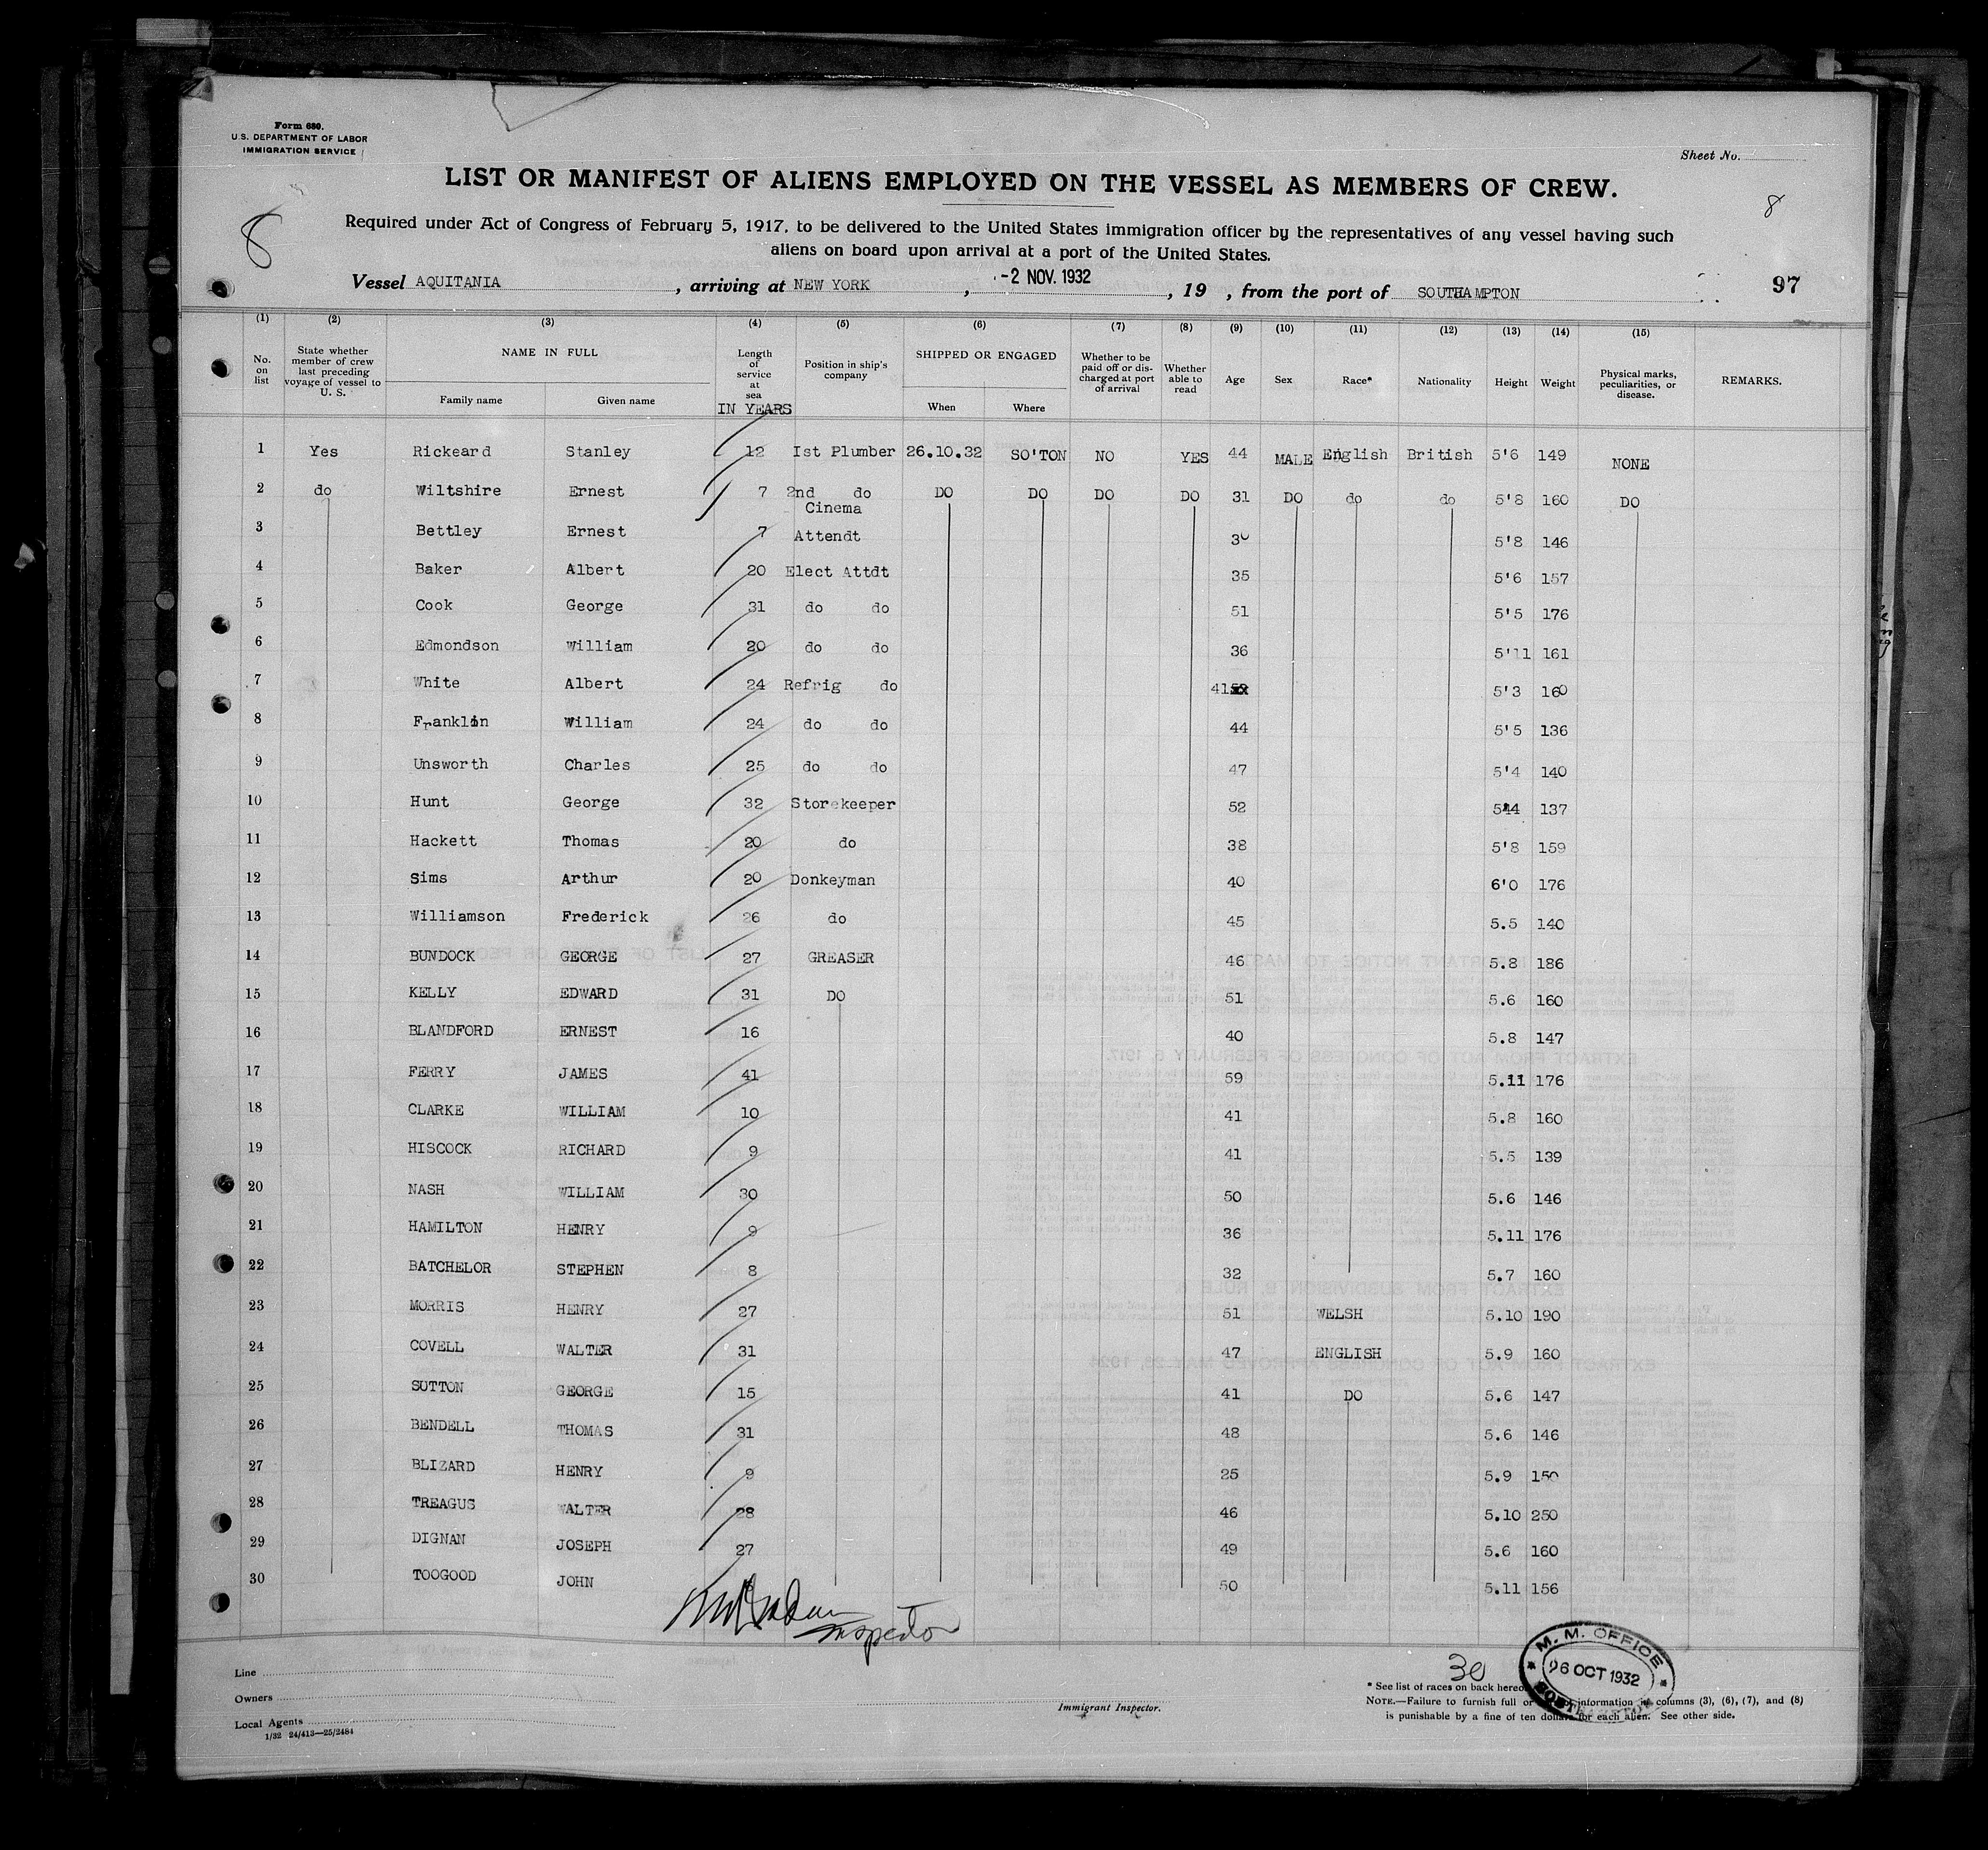 Form 680.
U.S. DEPARTMENT OF LABOR
IMMIGRATION SERVICE
Sheet No.
LIST OR MANIFEST OF ALIENS EMPLOYED ON THE VESSEL AS MEMBERS OF CREW.
8
8
Required under Act of Congress of February 5, 1917, to be delivered to the United States immigration officer by the representatives of any vessel having such
aliens on board upon arrival at a port of the United States.
Vessel AQUITANIA, arriving at NEW YORK, -2 NOV. 1932, 19 , from the port of SOUTHAMPTON 97
(1) (2) (3) (4) (5) (6) (7) (8) (9) (10) (11) (12) (13) (14) (15)
No. on list State whether member of crew last preceding voyage of vessel to U. S. NAME IN FULL Family name Given name Length of service at sea IN YEARS Position in ship's company SHIPPED OR ENGAGED When Where Whether to be paid off or discharged at port of arrival Whether able to read Age Sex Race* Nationality Height Weight Physical marks, peculiarities, or disease. REMARKS.
1 Yes Rickeard Stanley 12 Ist Plumber 26.10.32 SO'TON NO YES 44 MALE English British 5'6 149 NONE
2 do Wiltshire Ernest 7 2nd do DO DO DO DO 31 DO do do 5'8 160 DO
3 Bettley Ernest 7 Cinema Attendt 30 5'8 146
4 Baker Albert 20 Elect Attdt 35 5'6 157
5 Cook George 31 do do 51 5'5 176
6 Edmondson William 20 do do 36 5'11 161
7 White Albert 24 Refrig do 41 5'3 160
8 Franklin William 24 do do 44 5'5 136
9 Unsworth Charles 25 do do 47 5'4 140
10 Hunt George 32 Storekeeper 52 5'4 137
11 Hackett Thomas 20 do 38 5'8 159
12 Sims Arthur 20 Donkeyman 40 6'0 176
13 Williamson Frederick 26 do 45 5.5 140
14 BUNDOCK GEORGE 27 GREASER 46 5.8 186
15 KELLY EDWARD 31 DO 51 5.6 160
16 BLANDFORD ERNEST 16 40 5.8 147
17 FERRY JAMES 41 59 5.11 176
18 CLARKE WILLIAM 10 41 5.8 160
19 HISCOCK RICHARD 9 41 5.5 139
20 NASH WILLIAM 30 50 5.6 146
21 HAMILTON HENRY 9 36 5.11 176
22 BATCHELOR STEPHEN 8 32 5.7 160
23 MORRIS HENRY 27 51 WELSH 5.10 190
24 COVELL WALTER 31 47 ENGLISH 5.9 160
25 SUTTON GEORGE 15 41 DO 5.6 147
26 BENDELL THOMAS 31 48 5.6 146
27 BLIZARD HENRY 9 25 5.9 150
28 TREAGUS WALTER 28 46 5.10 250
29 DIGNAN JOSEPH 27 49 5.6 160
30 TOOGOOD JOHN 50 5.11 156
Inspector
Line
Owners
Local Agents
1/32 24/413—25/2484
Immigrant Inspector.
30
M. M. OFFICE
26 OCT 1932
SOUTHAMPTON
* See list of races on back hereof.
NOTE.—Failure to furnish full or information in columns (3), (6), (7), and (8)
is punishable by a fine of ten dollars for each alien. See other side.